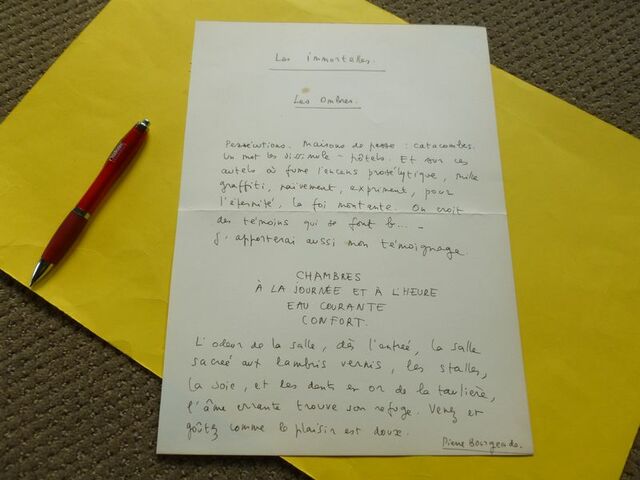 Les immortelles.
Les Ombres.
Persécutions. Maisons de passe : catacombes.
Un mot les dissimule - hôtels. Et sur ces
autels où fume l'encens prosélytique, mille
graffiti, naïvement, expriment, pour
l'éternité, la foi montante. On croit
des témoins qui se font b... -
J'apporterai aussi mon témoignage.
CHAMBRES
À LA JOURNÉE ET À L'HEURE
EAU COURANTE
CONFORT.
L'odeur de la salle, dès l'entrée, la salle
sacrée aux lambris vernis, les stalles,
la soie, et les dents en or de la taulière,
l'âme errante trouve son refuge. Venez et
goûtez comme le plaisir est doux.
Pierre Bourgeade.